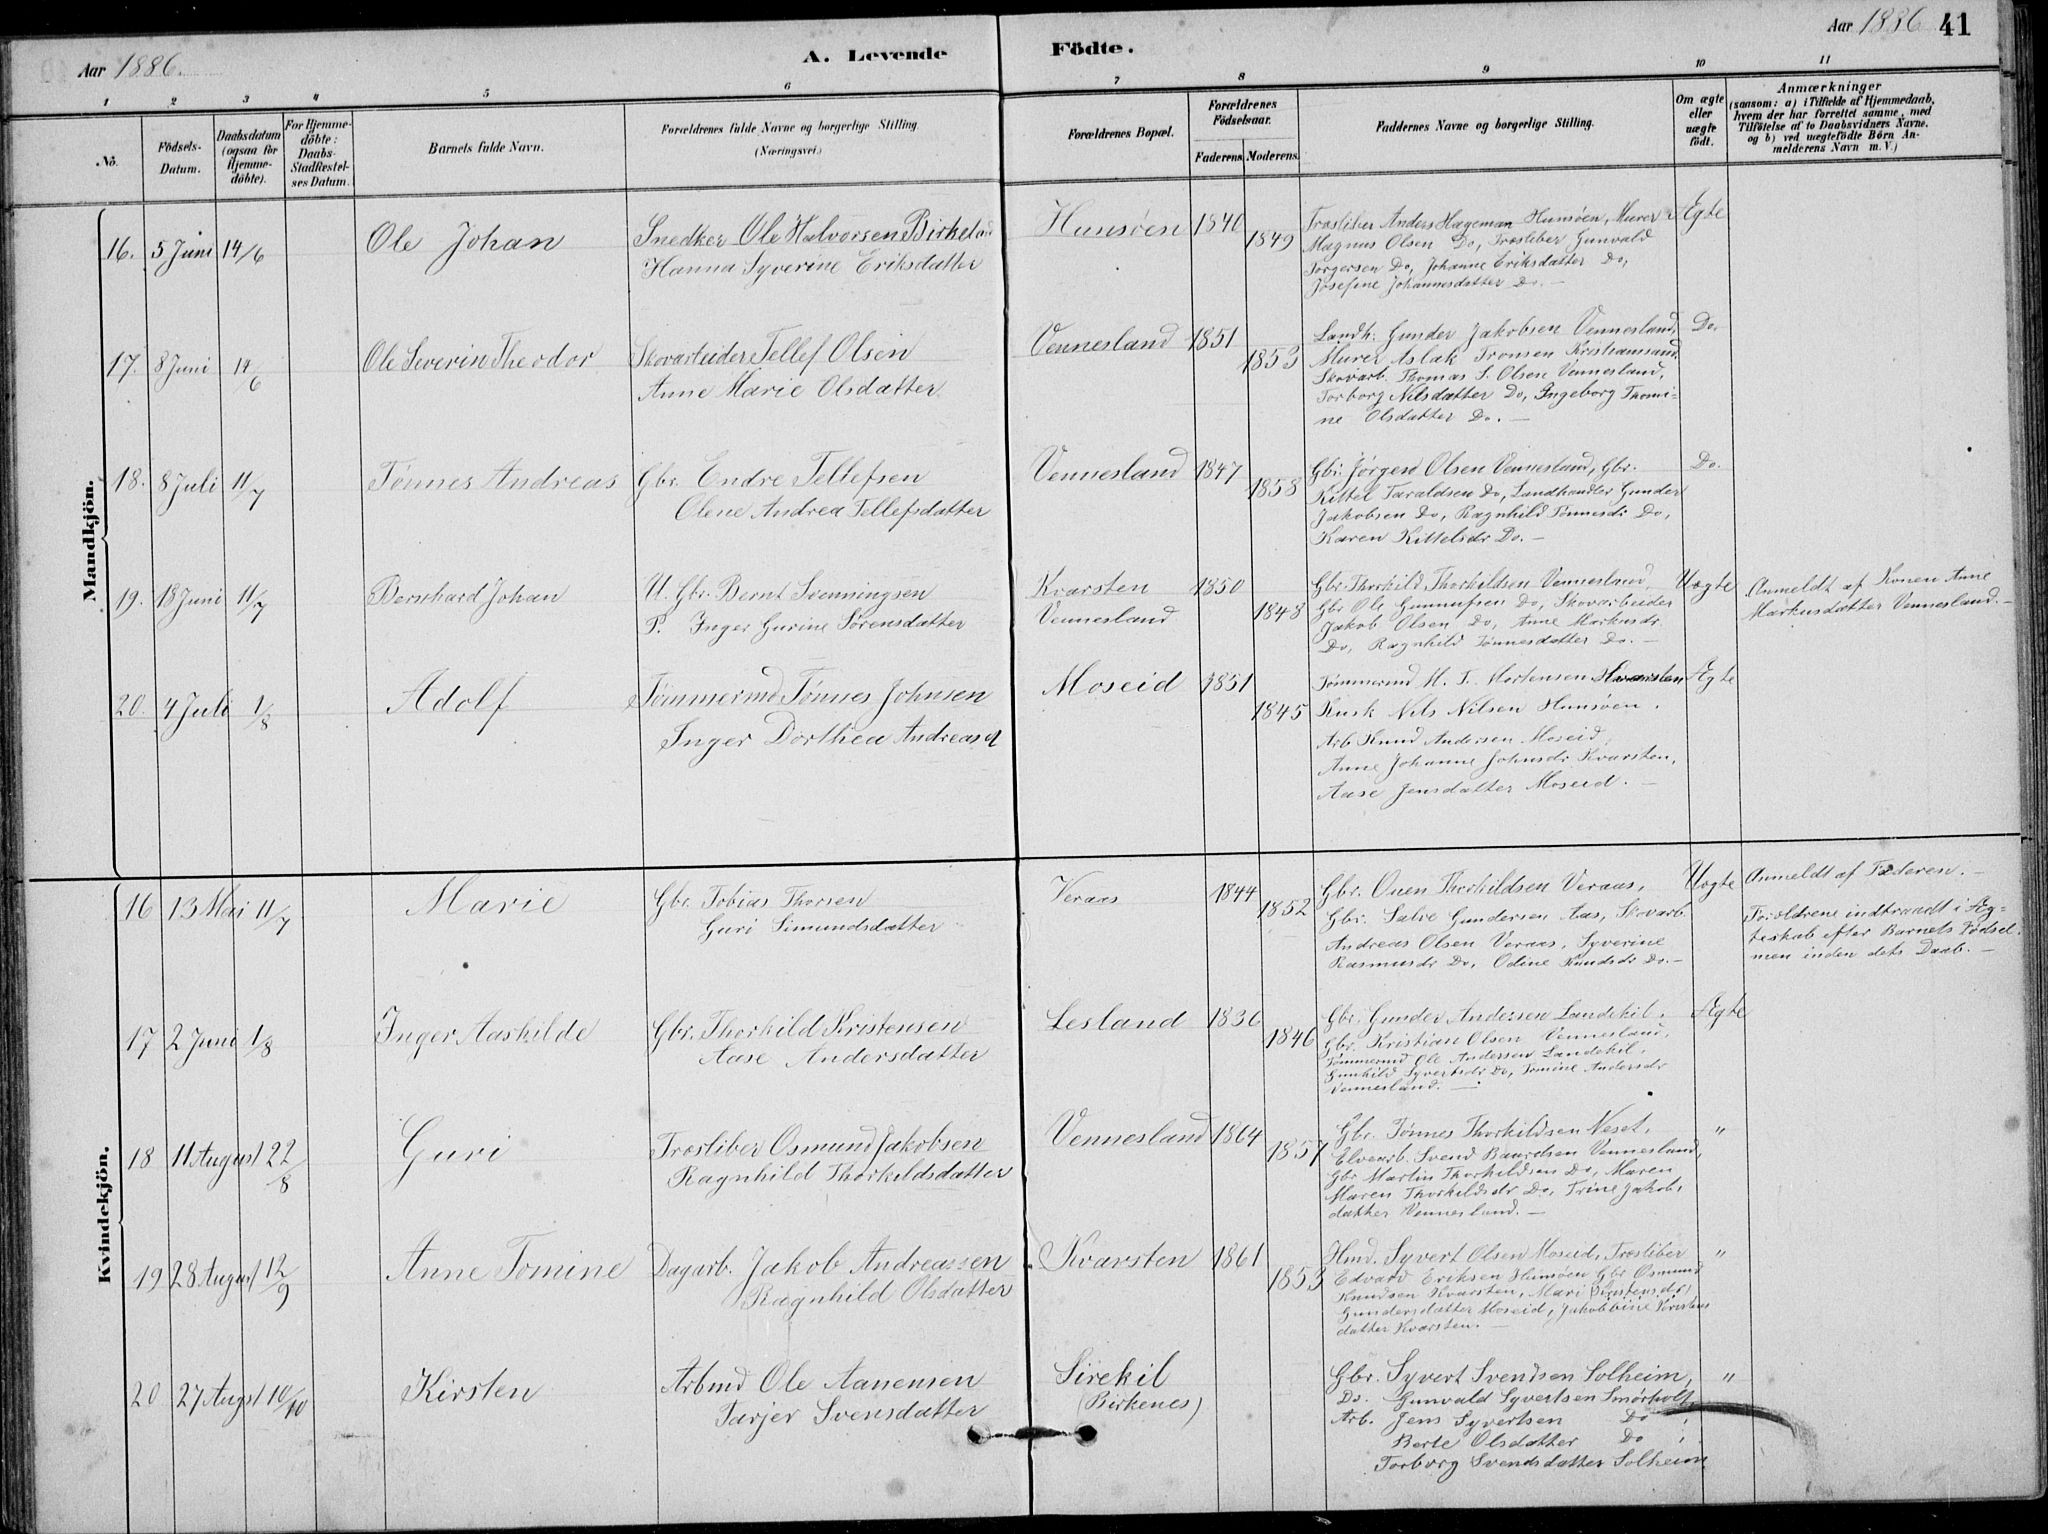 Aar 1886.
A. Levende
Födte.
Aar 1886
41
1
2
3
4
5
6
7
8
9
10
11
No.
Födsels-
Datum.
Daabsdatum
(ogsaa for
Hjemme-
döbte).
For Hjemme-
döbte:
Daabs-
Stadfæstel-
ses Datum.
Barnets fulde Navn.
Forældrenes fulde Navne og borgerlige Stilling
(Næringsvei.)
Forældrenes Bopæl.
Forældrenes
Födselsaar.
Faderens
Moderens.
Faddernes Navne og borgerlige Stilling.
Om ægte
eller
uægte
født.
Anmærkninger
(saasom: a) i Tilfælde af Hjemmedaab,
hvem der har forrettet samme, med
Tilföielse af to Daabsvidners Navne,
og b) ved uægtefödte Börn An-
melderens Navn m. V.)
Mandkjön.
16. 5 Juni 14/6 Ole Johan
Snedker Ole Halvorsen Birkeland
Hanna Syverine Eriksdatter
Hunsöen 1840 1849
Træsliber Anders Hageman Hunsöen, Murer
Magnus Olsen Do, Træsliber Gunvald
Torgersen Do, Johanne Eriksdatter Do,
Josefine Johannesdatter Do. —
Ægte
17. 8 Juni 14/6 Ole Severin Theodor
Skovarbeider Tellef Olsen
Anne Marie Olsdatter
Vennesland 1851 1853
Landh: Gunder Jakobsen Vennesland,
Murer Aslak Tronsen Kristiansand,
Skovarb. Thomas S. Olsen Vennesland,
Torborg Nilsdatter Do, Ingeborg Thomi-
ne Olsdatter Do. —
Do.
18. 8 Juli 11/7 Tönnes Andreas
Gbr. Endre Tellefsen
Olene Andrea Tellefsdatter
Vennesland 1847 1858
Gbr. Jörgen Olsen Vennesland, Gbr.
Kittel Taraldsen Do, Landhandler Gunder
Jakobsen Do, Ragnhild Tönnesdr Do,
Karen Kittelsdr Do. —
Do.
19. 18 Juni 11/7 Bernhard Johan
U. Gbr. Bernt Svenningsen
P. Inger Gurine Sörensdatter
Kvarsten
Vennesland
1850 1848
Gbr. Thorkild Thorkildsen Vennesland,
Gbr Ole Gunnufsen Do, Skovarbeider
Jakob Olsen Do, Anne Markusdr
Do, Ragnhild Tönnesdatter Do. —
Uægte
Anmeldt af Konen Anne
Markusdatter Vennesland. —
20. 4 Juli 1/8 Adolf
Tömmermd Tönnes Johnsen
Inger Dorthea Andreasd
Moseid 1851 1845
Tömmermd M. T. Mortensen Kvarsten
Kusk Nils Nilsen Hunsöen.
Arb Knud Andersen Moseid,
Anne Johanne Johnsdr Kvarsten,
Aase Jensdatter Moseid. —
Ægte
Kvindekjön.
16 13 Mai 11/7 Marie
Gbr. Tobias Thorsen
Guri Simundsdatter
Veraas 1844 1852
Gbr. Ouen Thorkildsen Veraas,
Gbr. Salve Gundersen Aas, Skovarb.
Andreas Olsen Veraas, Syverine
Rasmusdr Do, Odine Knudsdr Do. —
Uægte
Anmeldt af Faderen. —
Forældrene indtraadt i Æg-
teskab efter Barnets Födsel,
men inden dets Daab. —
17 2 Juni 1/8 Inger Aashilde
Gbr. Thorkild Kristensen
Aase Andersdatter
Lesland 1836 1846
Gbr. Gunder Andersen Landekil,
Gbr. Kristian Olsen Vennesland,
Tömmermd Ole Andersen Landekil,
Gunhild Syvertsdr Do, Tomine Andersdr
Vennesland. —
Ægte
18 11 August 22/8 Guri
Træsliber Osmund Jakobsen
Ragnhild Thorkildsdatter
Vennesland 1864 1857
Gbr. Tönnes Thorkildsen Neset,
Elvearb. Svend Baardsen Vennesland,
Gbr Martin Thorkildsen Do, Maren
Maren Thorkildsdr Do, Trine Jakob.
datter Vennesland. —
"
19 28 August 12/9 Anne Tomine
Dagarb. Jakob Andreassen
Ragnhild Olsdatter
Kvarsten 1861 1853
Hmd. Syvert Olsen Moseid, Træsliber
Edvard Eriksen Hunsöen Gbr Osmund
Knudsen Kvarsten, Mari
Gundersdatter Moseid, Jakobbine Kristens
datter Kvarsten. —
"
20 27 Augst 10/10 Kirsten
Arbmd Ole Aanensen
Tarjer Svensdatter
Sirekil
(Birkenes)
Gbr. Syvert Svendsen Solheim,
Do. Gunvald Syvertsen Smörholt,
Arb. Jens Syvertsen Do,
Berte Olsdatter Do,
Torborg Svendsdatter Solheim
"